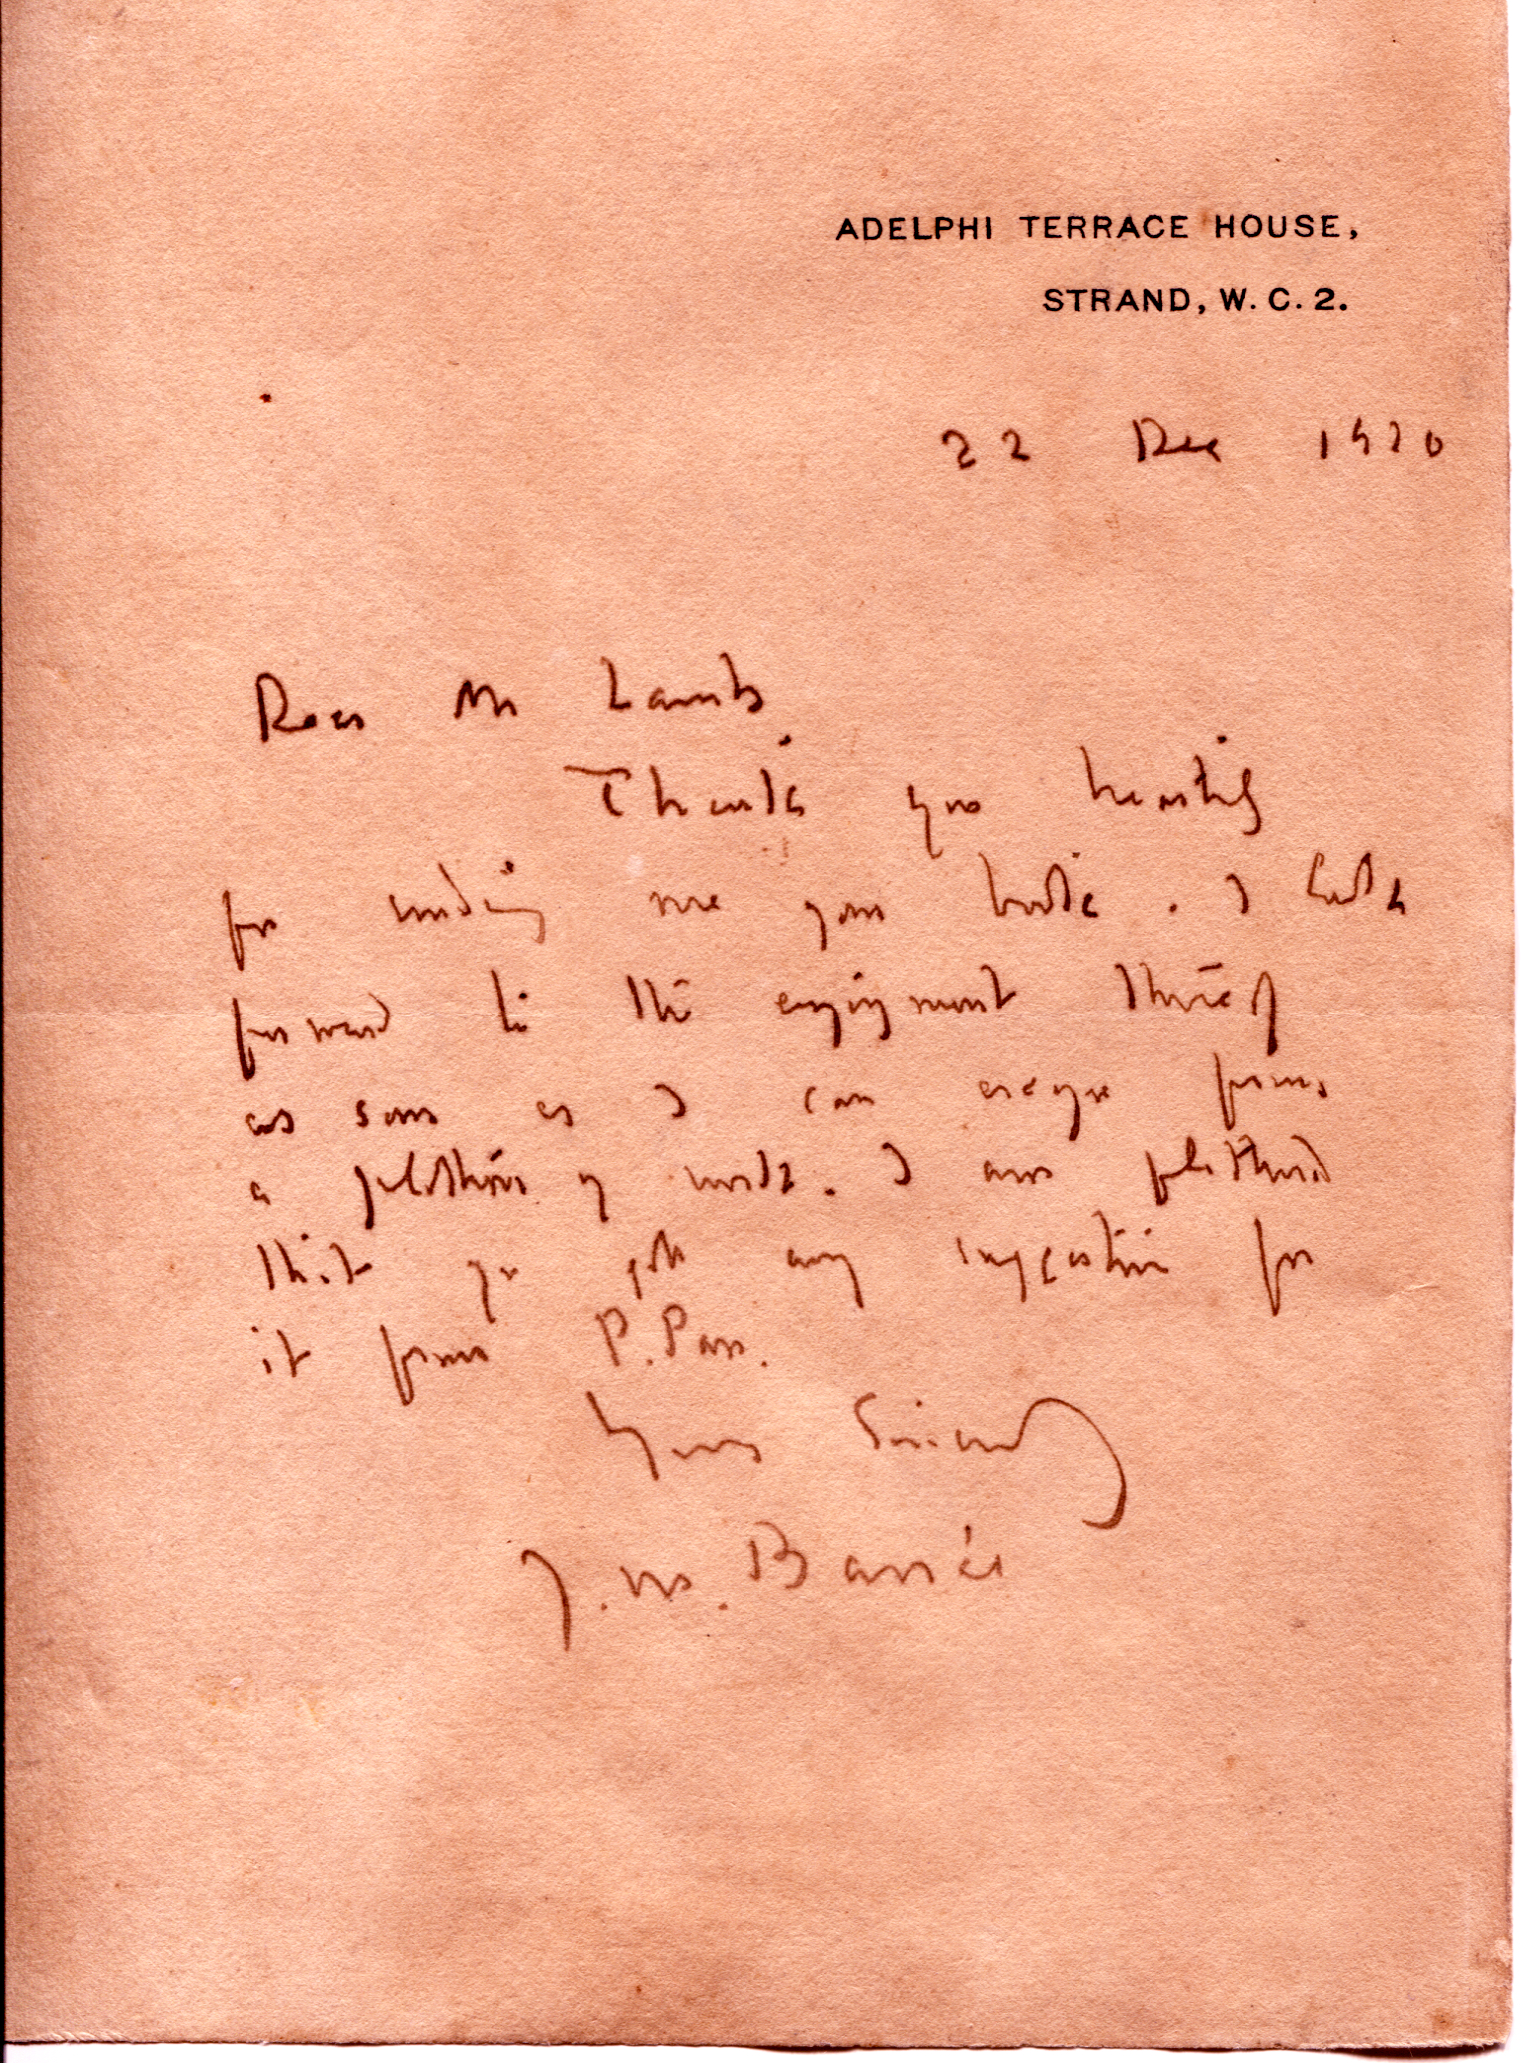 ADELPHI TERRACE HOUSE,
STRAND, W. C. 2.
22 Dec 1920
Dear Mr Lamb
Thank you heartily
for sending me your book. I look
forward to the enjoyment thereof
as soon as I can escape from
a plethora of work. I am
that you got any suggestion for
it from P. Pan.
Yours Sincerely
J. M. Barrie